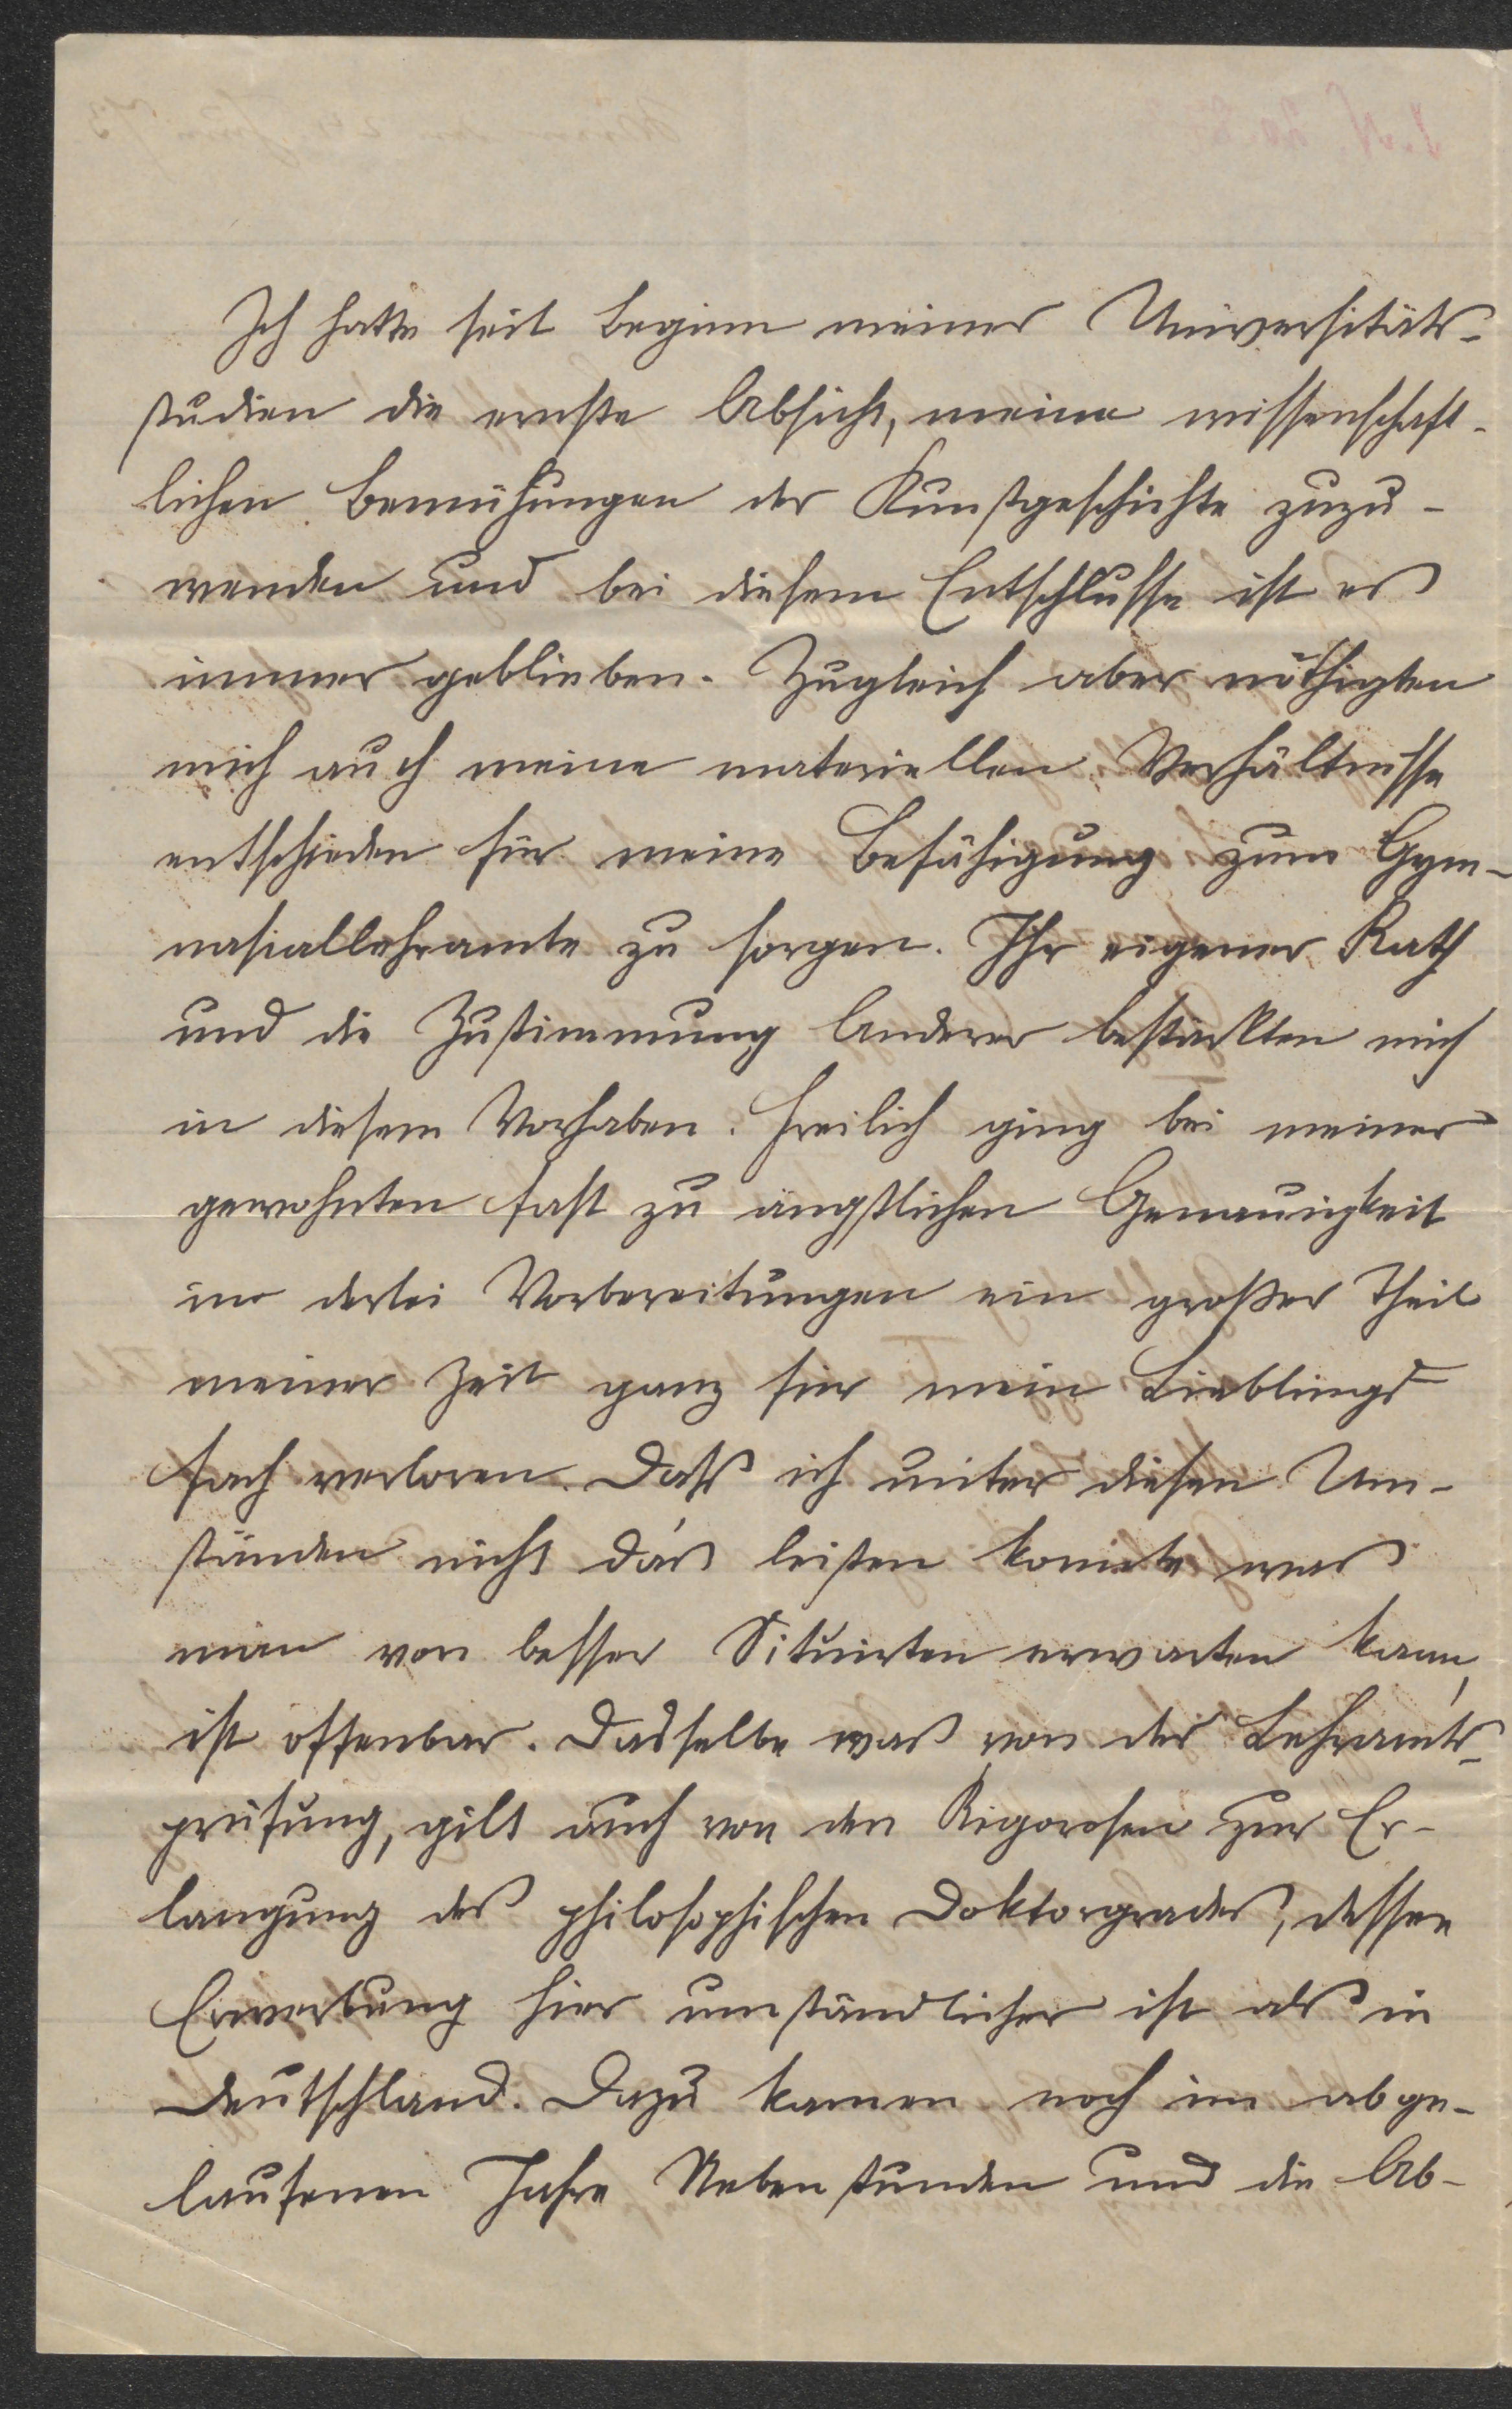 Ich hatte seit Beginn meiner Universitäts-
studien die ernste Absicht, meine wissenschaft-
lichen Bemühungen der Kunstgeschichte zuzu-
wenden und bei diesem Entschlusse ist es
immer geblieben. Zugleich aber nöthigten
mich auch meine materiellen Verhältnisse
entschieden für meine Befähigung zum Gym-
nasiallehramte zu sorgen. Ihr eigener Rath
und die Zustimmung Anderer bestärkten mich
in diesem Vorhaben. Freilich ging bei meiner
gewohnten fast zu ängstlichen Genauigkeit
in derlei Vorbereitungen ein großer Theil
meiner Zeit ganz für mein Lieblings
fach verloren. Daß ich unter diesen Um-
ständen nicht dás leisten konnte was
man von besser Situirten erwarten kann,
ist offenbar. Dasselbe was von der Lehramts-
prüfung, gilt auch von den Rigorosen zur Er-
langung des philosophischen Doktorgrades, dessen
Erwerbung hier umständlicher ist als in
Deutschland. Dazu kamen noch im abge-
laufenen Jahre Nebenstunden und die Ab-